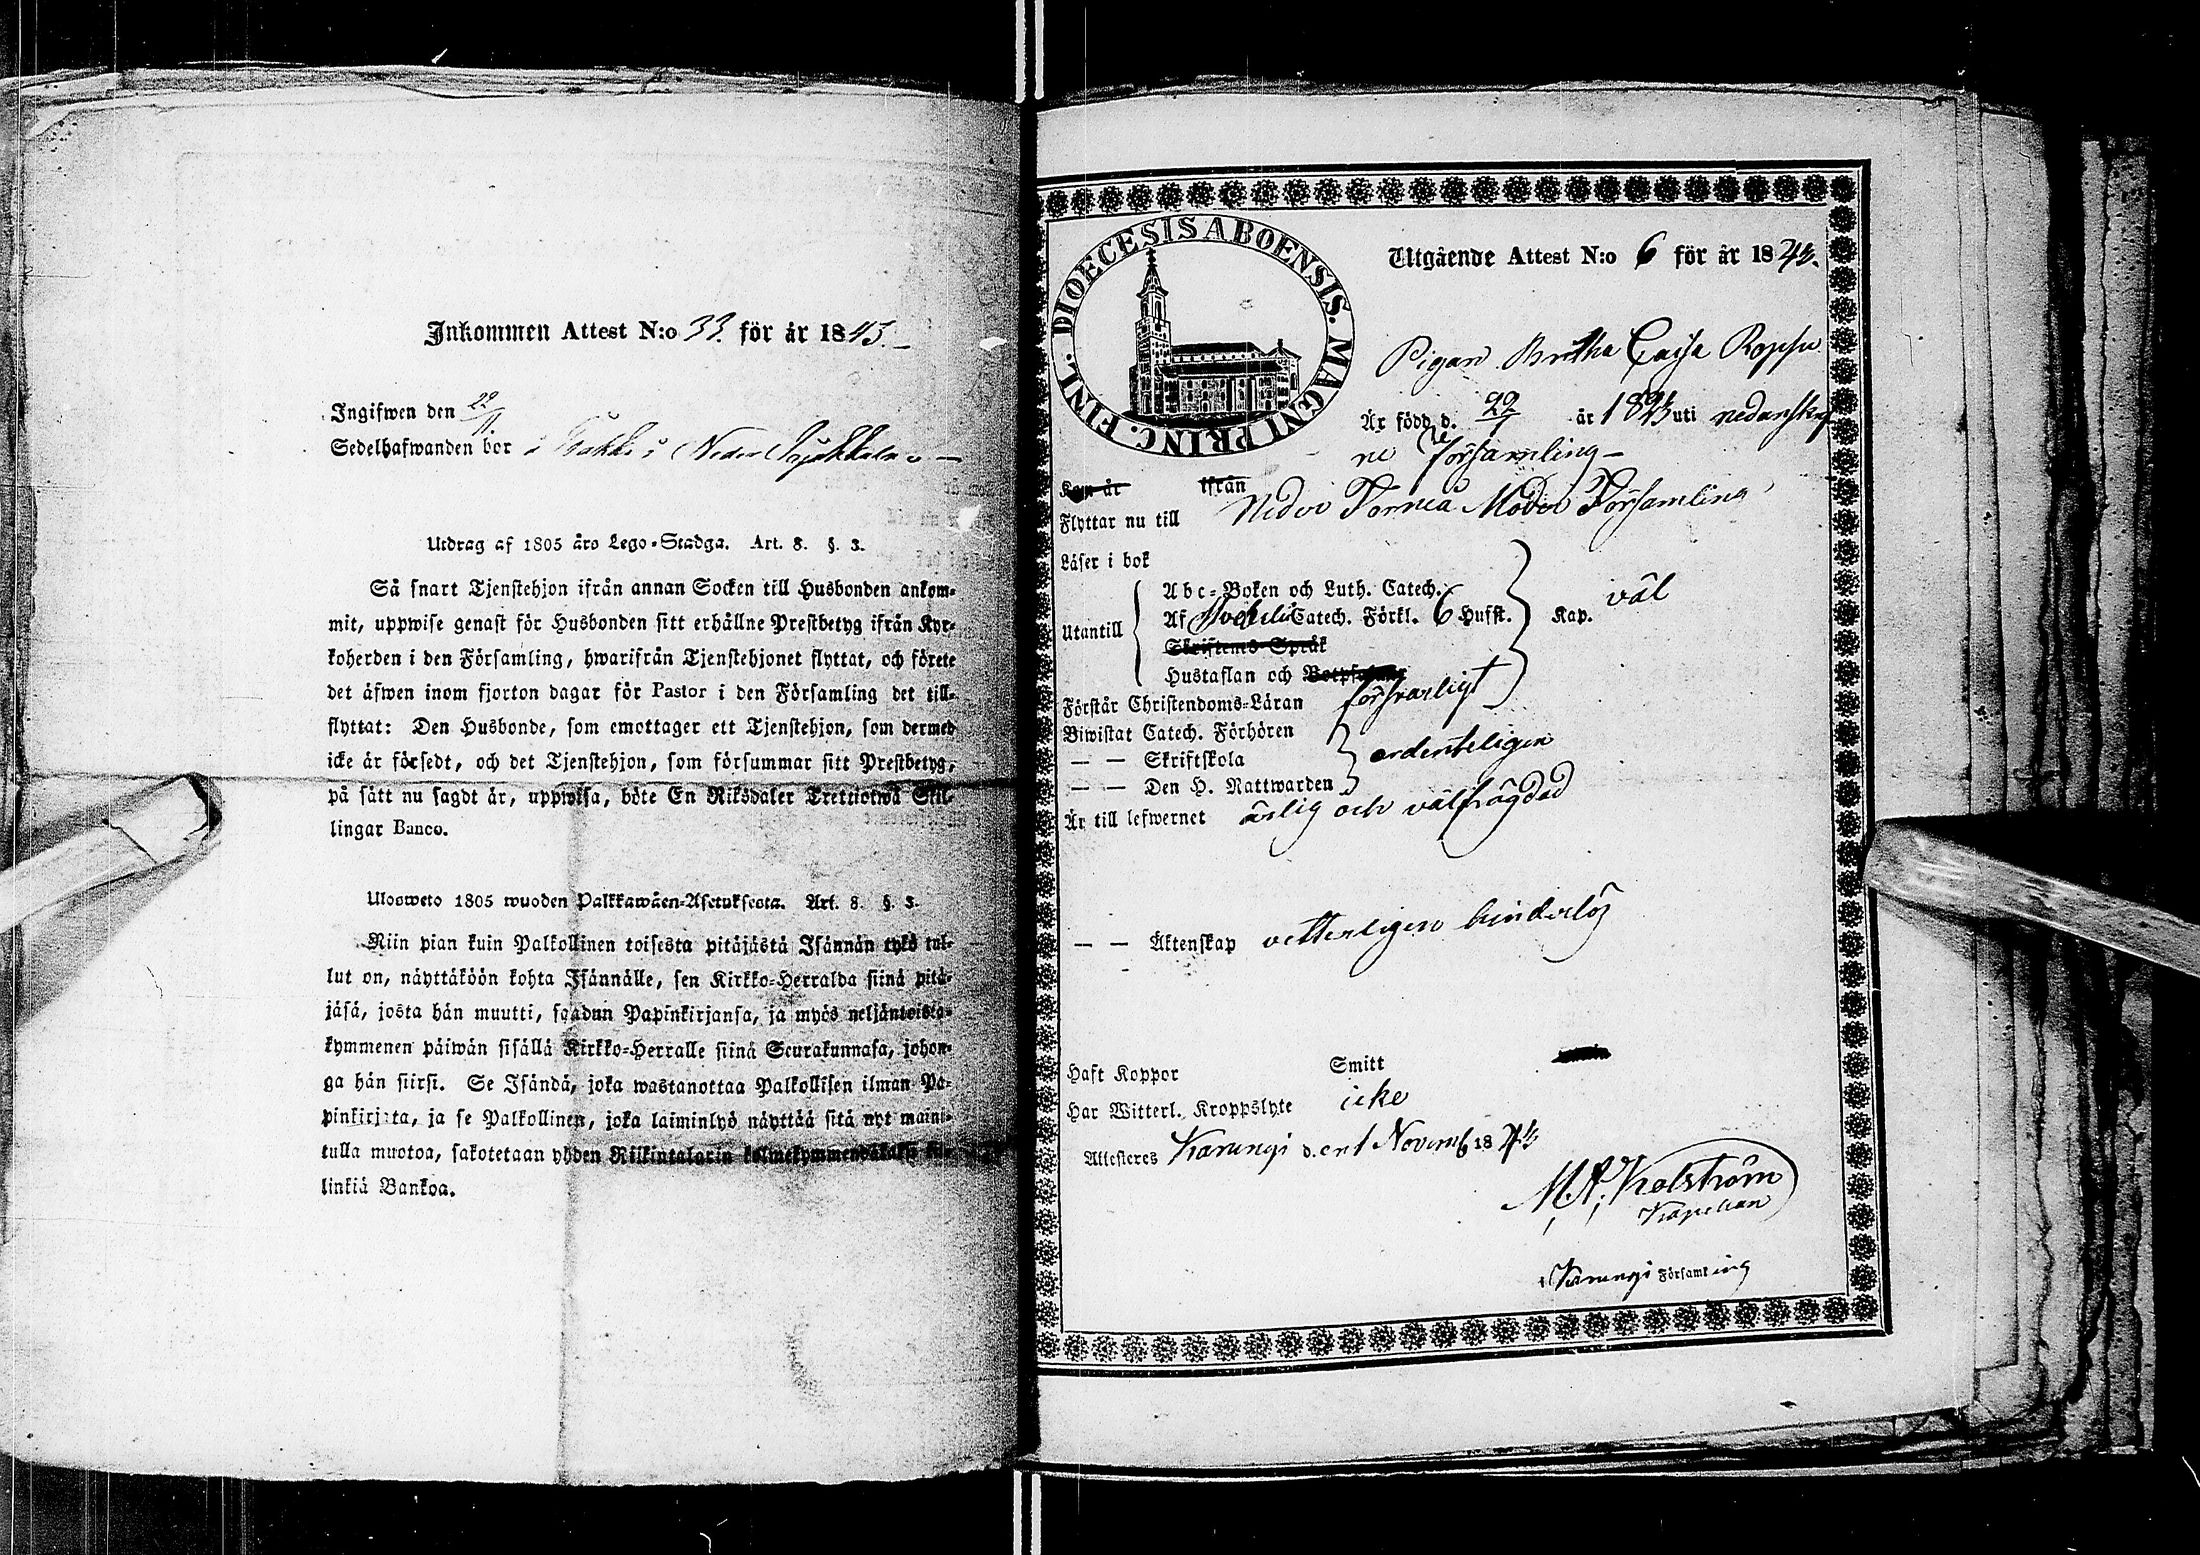 Inkommen Attest N:o 33. för år 1843.
Ingifwen den 22/11.
Sedelhafwanden bor i Wakki i Neder
Utdrag af 1805 års Lego-Stadga. Art. 8. §. 3.
Så snart Tjenstehjon ifrån annan Socken till Husbonden ankom-
mit, uppwise genast för Husbonden sitt erhållne Prestbetyg ifrån Kyr-
koherden i den Församling, hwarifrån Tjenstehjonet flyttat, och förete
det äfwen inom fjorton dagar för Pastor i den Församling det till-
flyttat: Den Husbonde, som emottager ett Tjenstehjon, som dermed
icke är försedt, och det Tjenstehjon, som försummar sitt Prestbetyg,
på sätt nu sagdt är, uppwisa, böte En Riksdaler Trettiotwå Skil-
lingar Banco.
Ulosweto 1805 wuoden Palkkawäen-Asetuksesta. Art. 8. §. 3.
Niin pian kuin Palkollinen toisesta pitäjästä Isännän tykö tul-
lut on, näyttäköön kohta Isännälle, sen Kirkko-Herralda siinä pitä-
jäsä, josta hän muutti, saadun Papinkirjansa, ja myös neljäntoista-
kymmenen päiwän sisällä Kirkko-Herralle siinä Seurakunnasa, johon-
ga hän siirsi. Se Isändä, joka wastanottaa Palkollisen ilman Pa-
pinkirjata, ja se Palkollinen, joka laiminlyö näyttää sitä nyt maini-
tulla muotoa, sakotetaan yhden Riikintalarin kolmekymmendäkaksi kil-
linkiä Bankoa.
DIOECESIS ABOENSIS. MAGNI PRINC. FINL.
Utgående Attest N:o 6 för år 1843.
Pigan Britha Caisa Roppu
Är född d. 22/7 år 1823 uti nedanskrif
ne Församling
Kan år ifrån
Flyttar nu till Nedre Torneå Moder Församling
Läser i bok
Abc-Boken och Luth. Catech.
Utantill Af Svebilii Catech. Förkl. 6 Hufst. Kap. väl
Skriftenes Språk
Hustaflan och Botpsalmer
Förstår Christendoms-Läran försvarligt
Biwistat Catech. Förhören
— — Skriftskola ordenteligen
— — Den H. Nattwarden
Är till lefwernet ärlig och välfrägdad
— — Äktenskap vetterligen hinderlös
Haft Koppor Smitt
Har Witterl. Kroppslyte icke
Attesteres Karungi d. en 1 Novemb 1843
Kapellan
i Karungi Församling